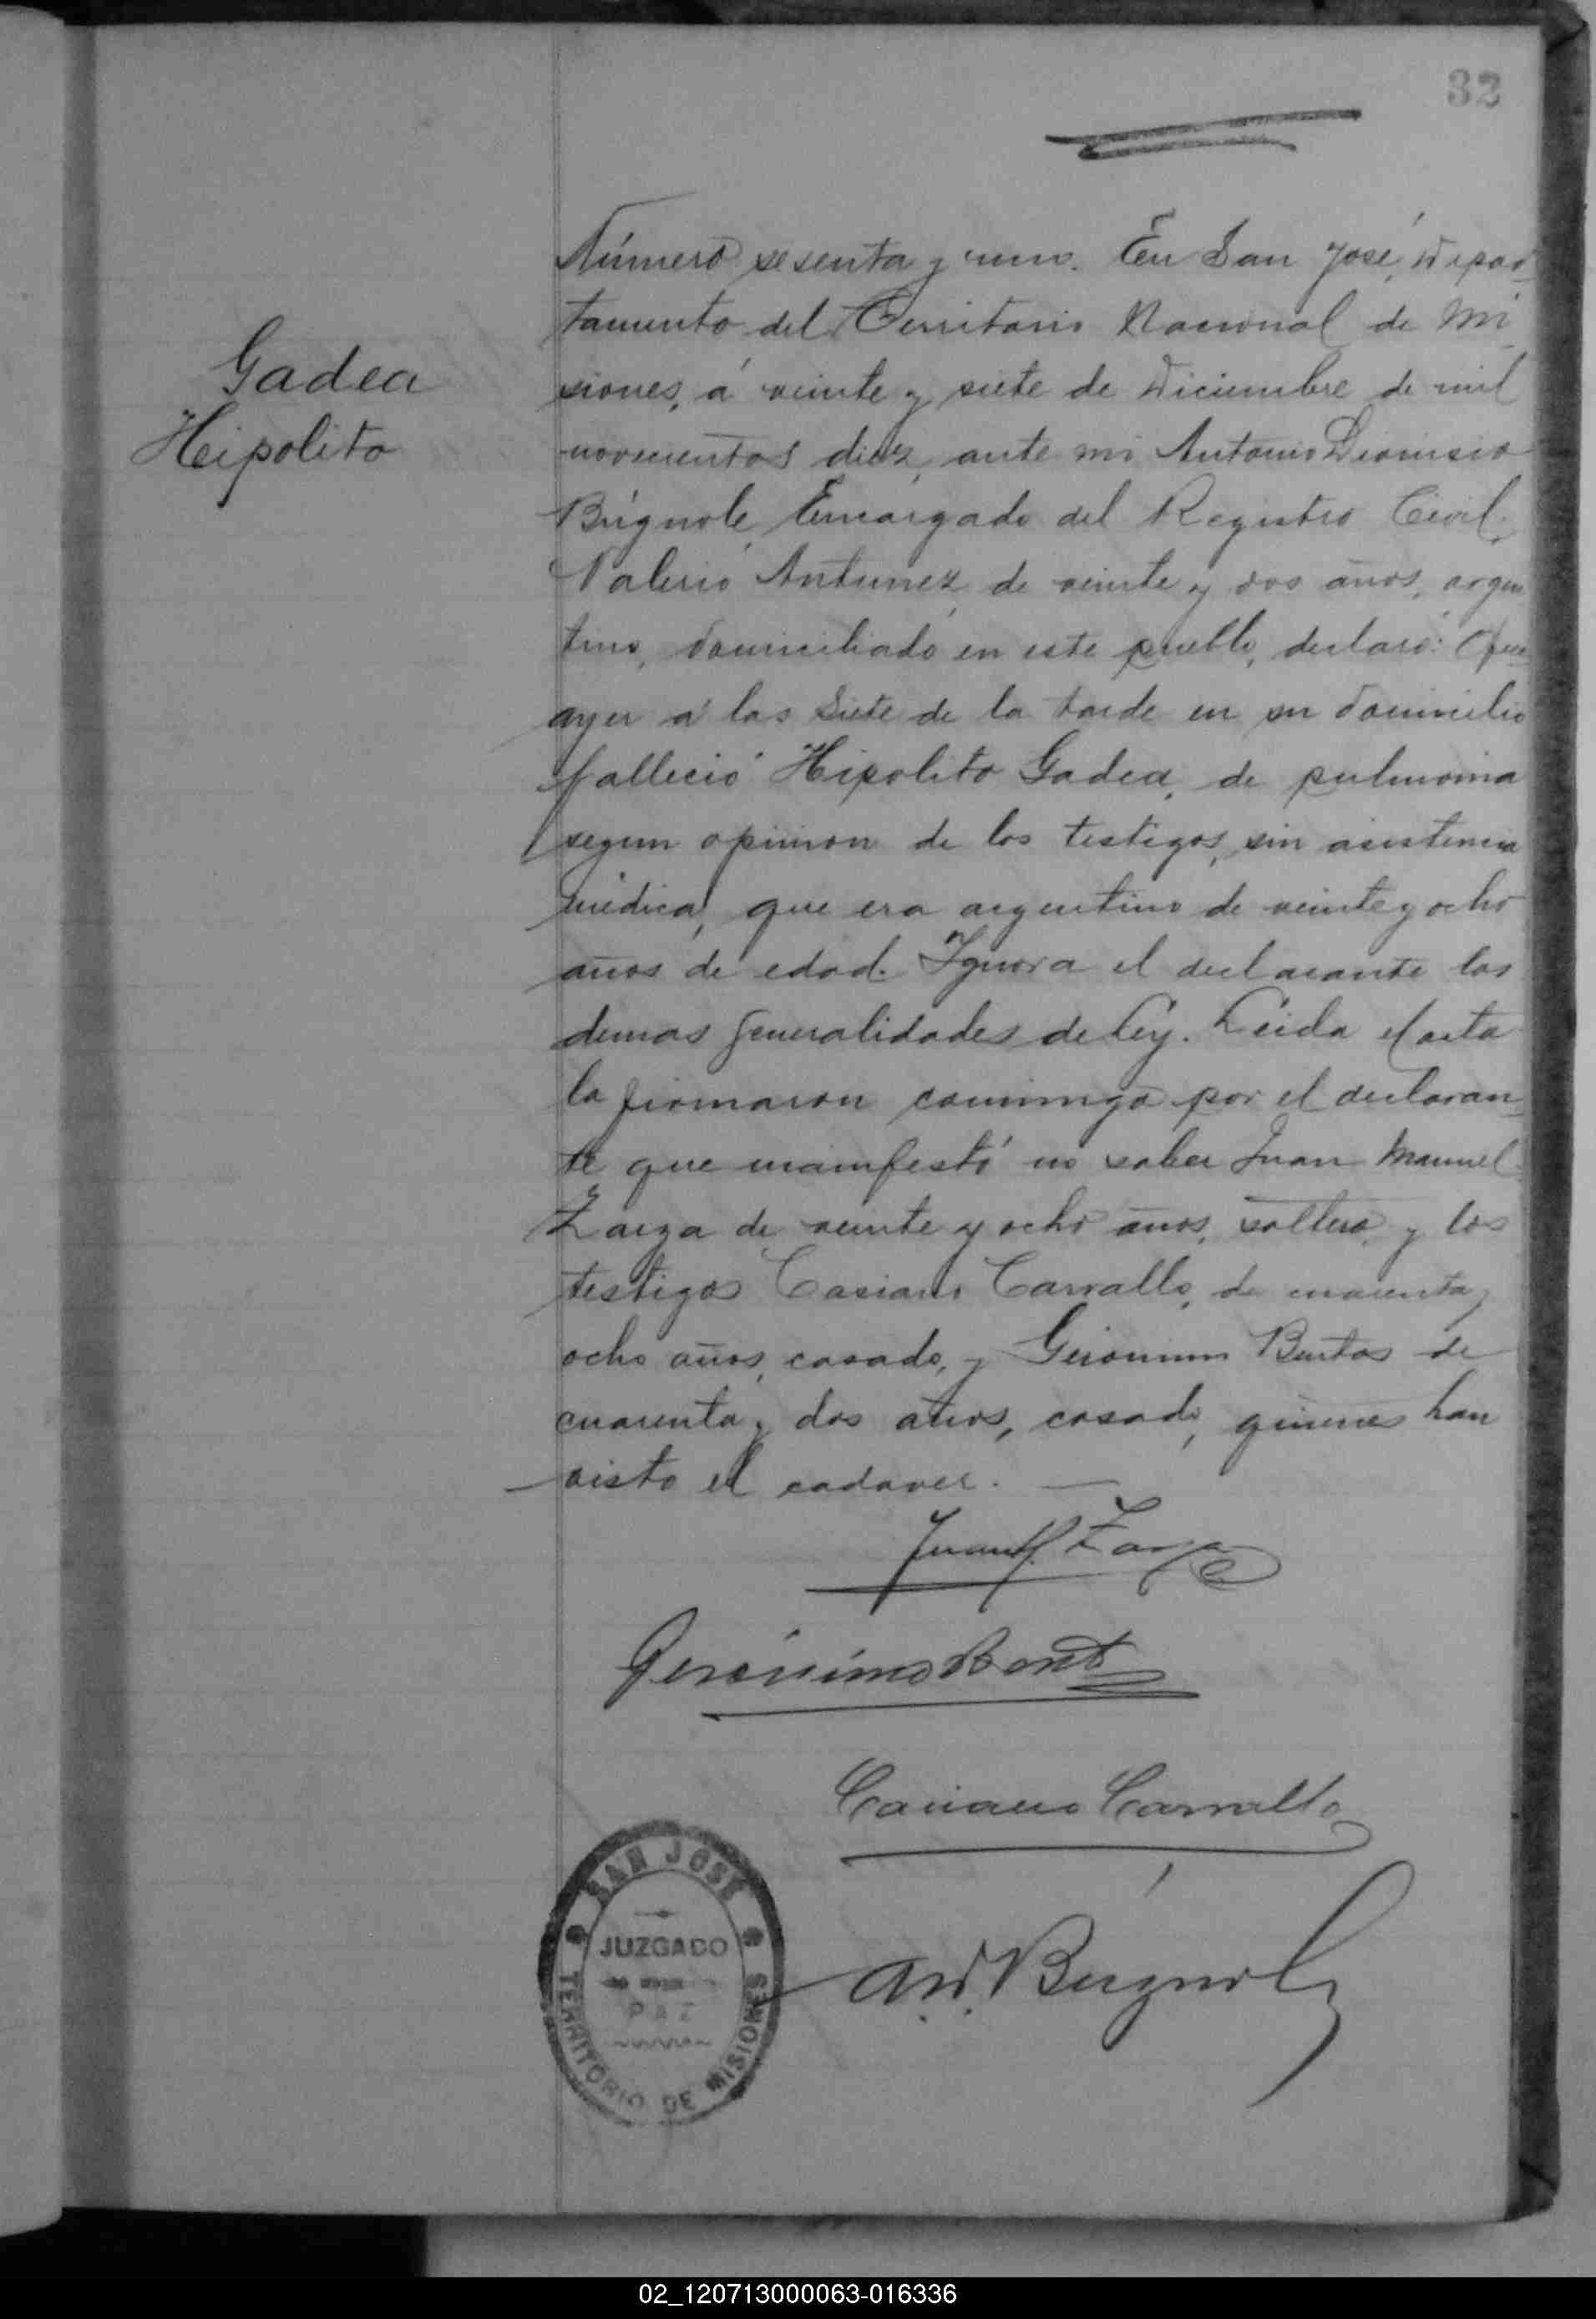 32
Gadea
Hipolito
Número sesenta y uno. En San José, Depar-
tamento del Territorio Nacional de Mi-
siones, á veinte y siete de Diciembre de mil
novecientos diez, ante mi Antonio Dionisio
Búgnole, Encargado del Registro Civil,
Valerio Antunez, de veinte y dos años, argen-
tino, domiciliado en este pueblo, declaró: Que
ayer á las siete de la tarde en su domicilio
falleció Hipolito Gadea, de pulmonia
segun opinion de los testigos, sin asistencia
médica, que era argentino de veinte y ocho
años de edad. Ignora el declarante las
demas generalidades de ley. Leida el acta
la firmaron conmigo por el declaran-
te que manifestó no saber Juan Manuel
Zarza de veinte y ocho años, soltero, y los
testigos Casiano Carvallo, de cuarenta y
ocho años, casado, y Geronimo Bentos de
cuarenta y dos años, casado, quienes han
visto el cadaver.
Juan M. Zarza
Gerónimo
Casiano Carvallo
A. D. Búgnole
SAN JOSÉ
JUZGADO
DE
PAZ
TERRITORIO DE MISIONES
02_120713000063-016336